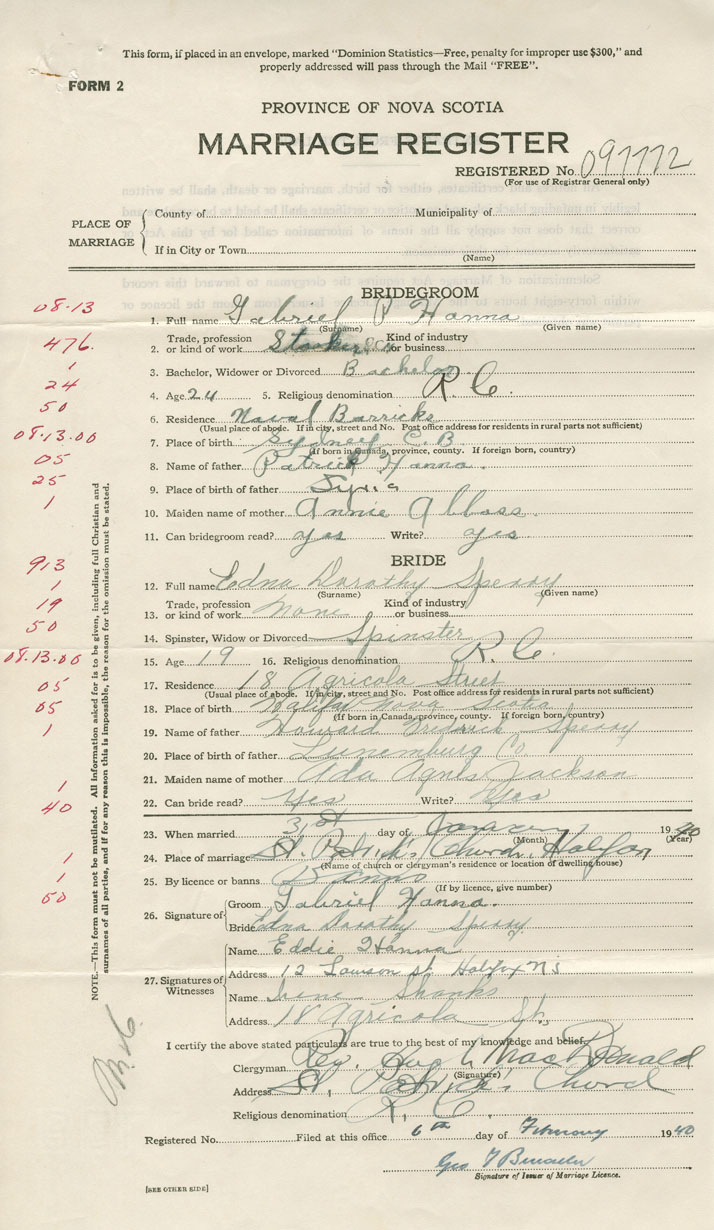 This form, if placed in an envelope, marked "Dominion Statistics—Free, penalty for improper use $300," and
properly addressed will pass through the Mail "FREE".
FORM 2
PROVINCE OF NOVA SCOTIA
MARRIAGE REGISTER
REGISTERED No. 097772
(For use of Registrar General only)
PLACE OF MARRIAGE
County of Municipality of
If in City or Town
(Name)
BRIDEGROOM
08·13
1. Full name Gabriel P Hanna
(Surname) (Given name)
476.
Trade, profession Kind of industry
2. or kind of work Stoker or business
1
3. Bachelor, Widower or Divorced Bachelor
24
4. Age 24 5. Religious denomination R. C.
50
6. Residence Naval Barricks
(Usual place of abode. If in city, street and No. Post office address for residents in rural parts not sufficient)
08.13.00
7. Place of birth Sydney C. B.
(If born in Canada, province, county. If foreign born, country)
05
8. Name of father Patrick Hanna.
25
9. Place of birth of father Syria
1
10. Maiden name of mother Annie Abbass.
11. Can bridegroom read? yes Write? yes
BRIDE
913
12. Full name Edna Dorothy Sperry
(Surname) (Given name)
1
19
Trade, profession Kind of industry
13. or kind of work None or business
50
14. Spinster, Widow or Divorced Spinster
08.13.00
15. Age 19 16. Religious denomination R. C.
05
17. Residence 18 Agricola Street
(Usual place of abode. If in city, street and No. Post office address for residents in rural parts not sufficient)
05
18. Place of birth Halifax Nova Scotia
(If born in Canada, province, county. If foreign born, country)
1
19. Name of father Howard Fredrick Sperry
20. Place of birth of father Lunenburg Co
21. Maiden name of mother Ada Agnes Jackson
1
22. Can bride read? Yes Write? Yes
40
23. When married 31st day of January 1940
(Month) (Year)
1
24. Place of marriage St. Patrick's Church Halifax
(Name of church or clergyman's residence or location of dwelling house)
1
25. By licence or banns Banns
(If by licence, give number)
50
26. Signature of
Groom Gabriel Hanna.
Bride Edna Dorothy Sperry
27. Signatures of Witnesses
Name Eddie Hanna
Address 12 Lawson st Halifax NS
Name Irene Shanks
Address 18 Agricola St.
I certify the above stated particulars are true to the best of my knowledge and belief.
Clergyman Rev. MacDonald
(Signature)
Address St. Patrick's Church
Religious denomination R. C.
Registered No. Filed at this office 6th day of February 1940
Geo
Signature of Issuer of Marriage Licence.
[SEE OTHER SIDE]
NOTE.—This form must not be mutilated. All information asked for is to be given, including full Christian and
surnames of all parties, and if for any reason this is impossible, the reason for the omission must be stated.